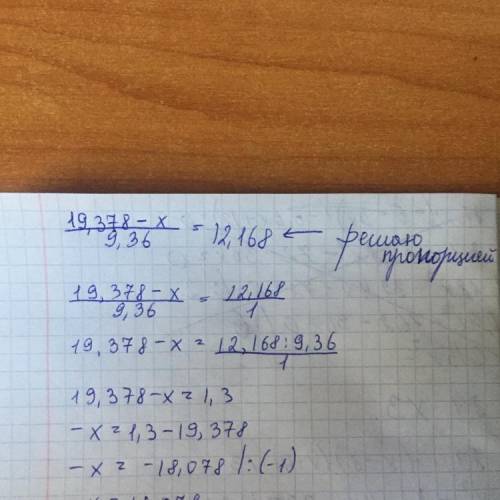 19,378 - x / 9,36 = 12,168 ← решаю пропорцией
19,378 - x / 9,36 = 12,168 / 1
19,378 - x = 12,168 : 9,36 / 1
19,378 - x = 1,3
-x = 1,3 - 19,378
-x = -18,078 |: (-1)